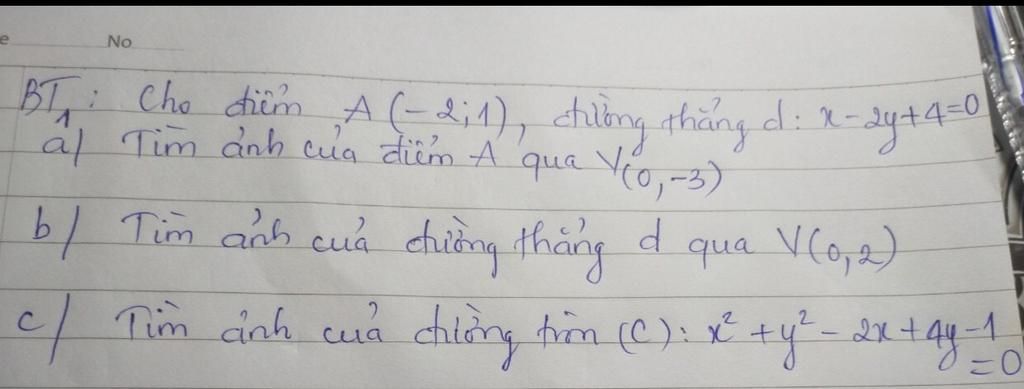 e No
BT1: Cho điểm A(-2;1), đường thẳng d: x-2y+4=0
a) Tìm ảnh của điểm A qua V(O,-3)
b) Tìm ảnh của đường thẳng d qua V(O,2)
c) Tìm ảnh của đường tròn (C): x²+y²-2x+4y-1
=0